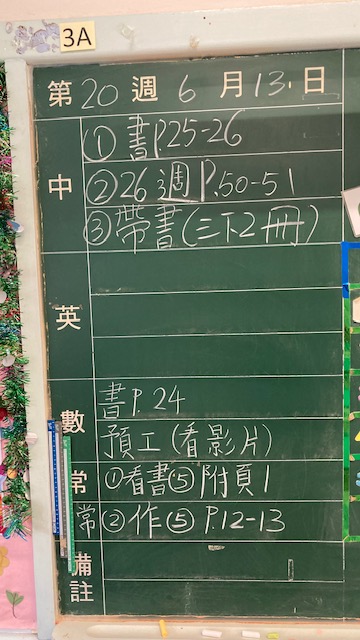 3A
第20週6月13日
中
①書P.25-26
②26週P.50-51
③帶書(三下2冊)
英
數
書P.24
預工(看影片)
常①看書⑤附頁1
常②作⑤P.12-13
備註